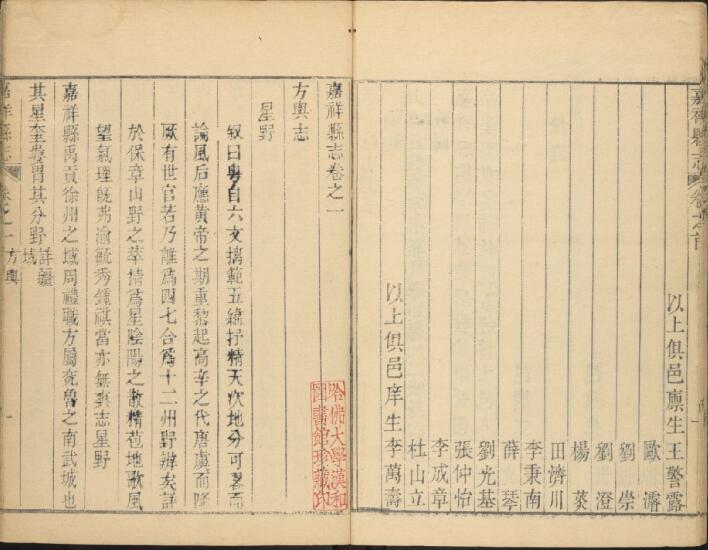 以上俱邑廪生王警露
歐濬
劉崇
劉澄
楊
田濟川
李秉南
薛琴
劉光基
張仲怡
李成章
杜山立
以上俱邑庠生李萬壽
哈佛大學漢和
圖書館珍藏印
嘉祥縣志卷之一
方輿志
星野
叙曰粵自六文摛範五緯抒精天次地分可畧而
論風后應黃帝之期重黎起高辛之代唐虞而降
厥有世官若乃離爲四七合爲十二州野辨矣詳
於保章山野之萃
望氣理旣弗渝毓秀鍾祺當亦無爽志星野
嘉祥縣禹貢徐州之域周禮職方屬兖魯之南武城也
其星奎婁胃其分野詳疆域
嘉祥縣志 卷之一 方輿 一